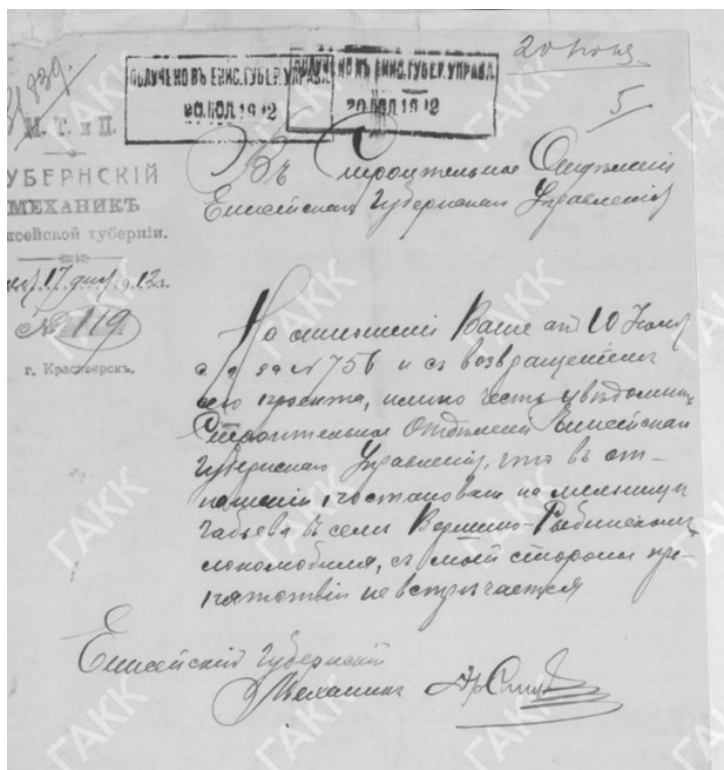 20 Іюня
5
839.
ПОЛУЧЕНО ВЪ ЕНИС. ГУБЕР. УПРАВЛ.
20. ИЮЛ 1912
ПОЛУЧЕНО ВЪ ЕНИС. ГУБЕР. УПРАВЛ.
20 ИЮЛ 1912
М. Т. и П.
УБЕРНСКІЙ
МЕХАНИКЪ
исейской губерніи.
17 дня 1912 г.
№ 119
г. Красноярскъ.
Въ Строительное Отдѣленіе
Енисейскаго Губернскаго Управленія
На отношеніе Ваше отъ 10 Іюня
с г за № 756 и съ возвращеніемъ
его проекта, имѣю честь увѣдомить
Строительное Отдѣленіе Енисейскаго
Губернскаго Управленія, что въ от-
ношеніи постановки на мельницу
въ селѣ Вершино-Рыбинскомъ
локомобиля, съ моей стороны пре-
пятствій не встрѣчается
Енисейскій Губернскій
Механикъ
ГАКК